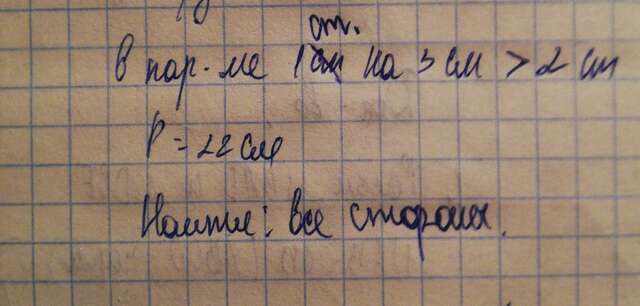 в пар-ме 1 ст. на 3 см > 2 ст
P = 22 см
Найти: все стороны.